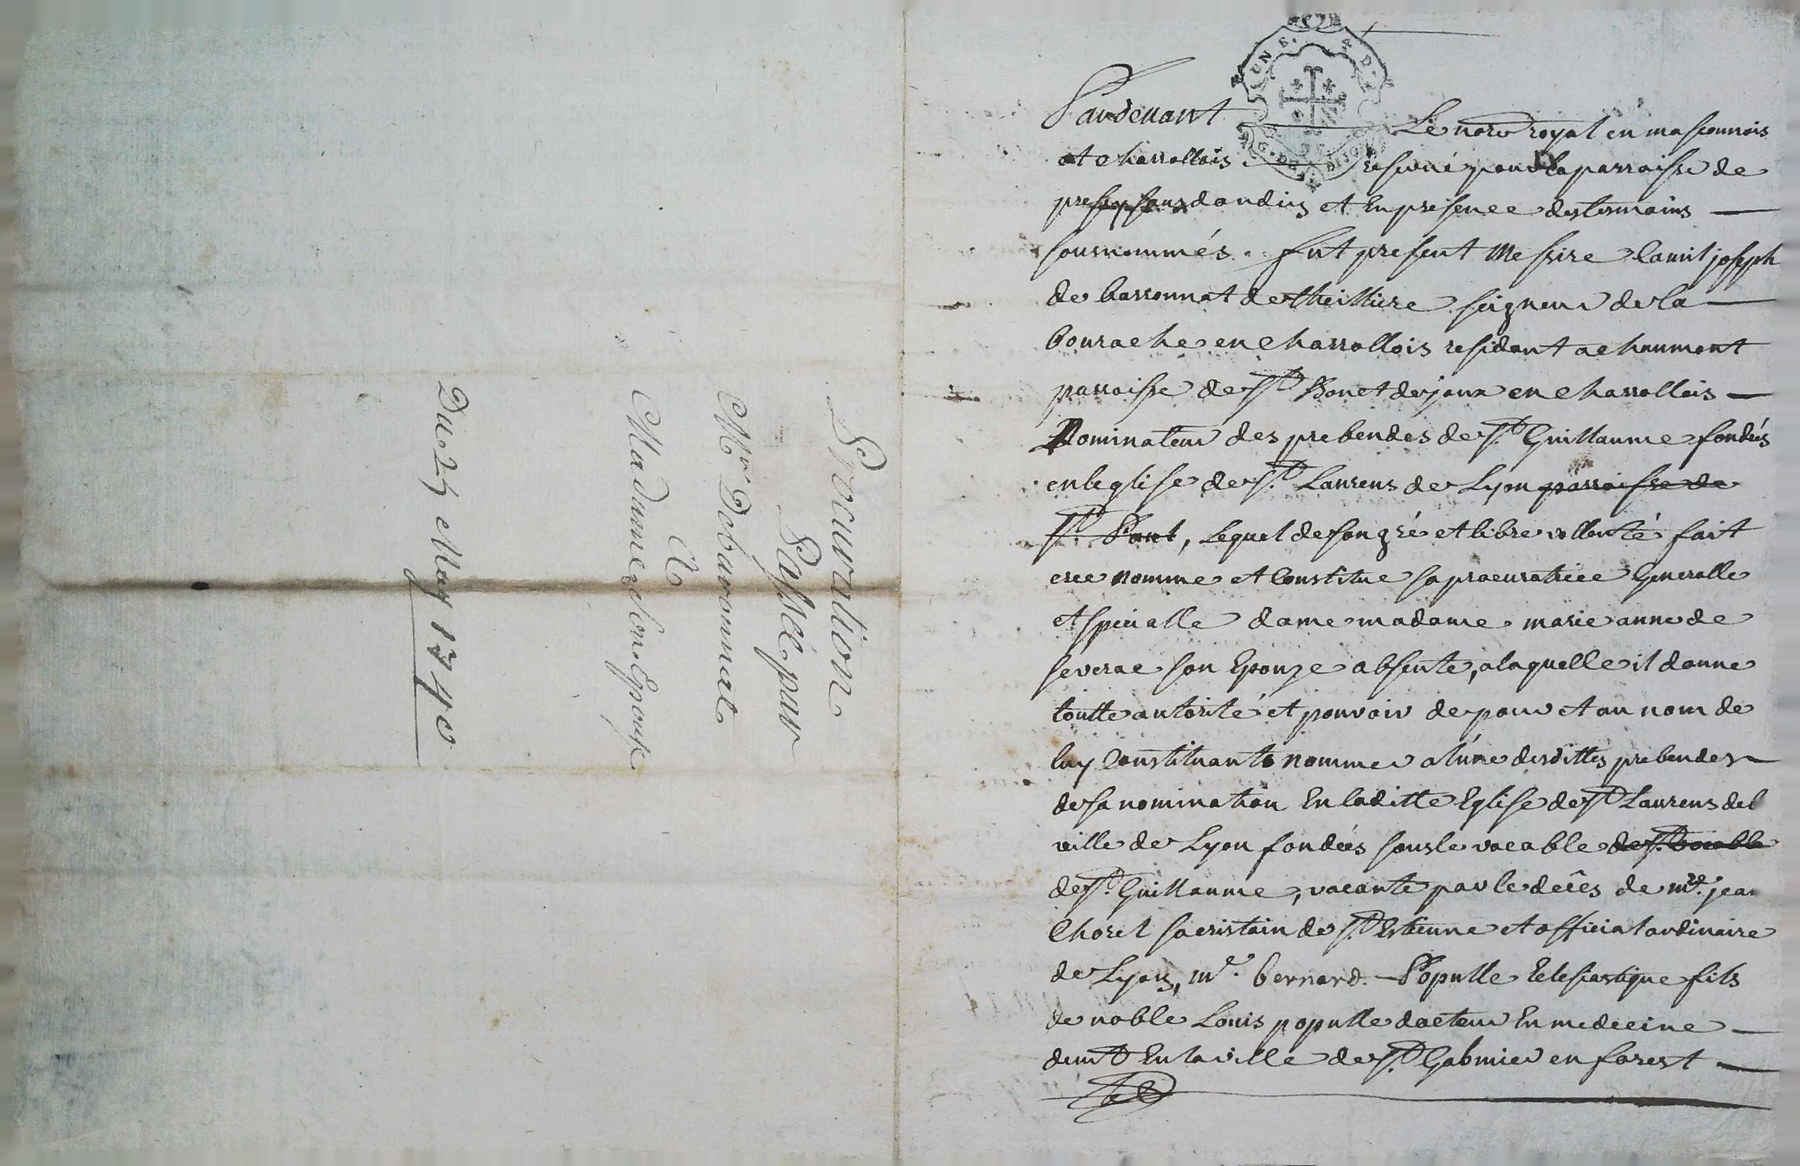 Procuration
Passéé par
Mr Debaronnat
A
Madame Son Epouse
Du 25 May 1740
UN S. 4 D.
G. DE DIJON
Pardevant Le nore royal en masconnois
et charrollois reservé pour la parroisse de
pressy sous dondin et En presence des temoins
sousnommés. fut present Messire Camil joseph
de barronnat de theilliere seigneur de la
bourache en Charrollois residant a chaumont
parroisse de st Bonet de joux en Charrollois
Nominateur des prebendes de st Guillaume fondéés
en leglise de st Laurens de Lyon parroisse de
st Paul, Lequel de son gré et libre vollonté fait
créé nomme et Constitue sa procuratrice Generalle
et specialle dame madame marie anne de
severac son Epouze absente, a laquelle il donne
toutte autorité et pouvoir de pour et au nom de
luy Constituant nommer a l'une desdittes prebendes
de sa nomination En laditte Eglise de st Laurens del
ville de Lyon fondéés sous le vocable de st vocable
de st Guillaume, vacante par le decés de mre jean
Chorel sacristain de st Estienne et official ordinaire
de Lyon, mr bernard Populle Eclesiastique fils
de noble Louis populle docteur En medecine
demt En la ville de st Galmier en forest